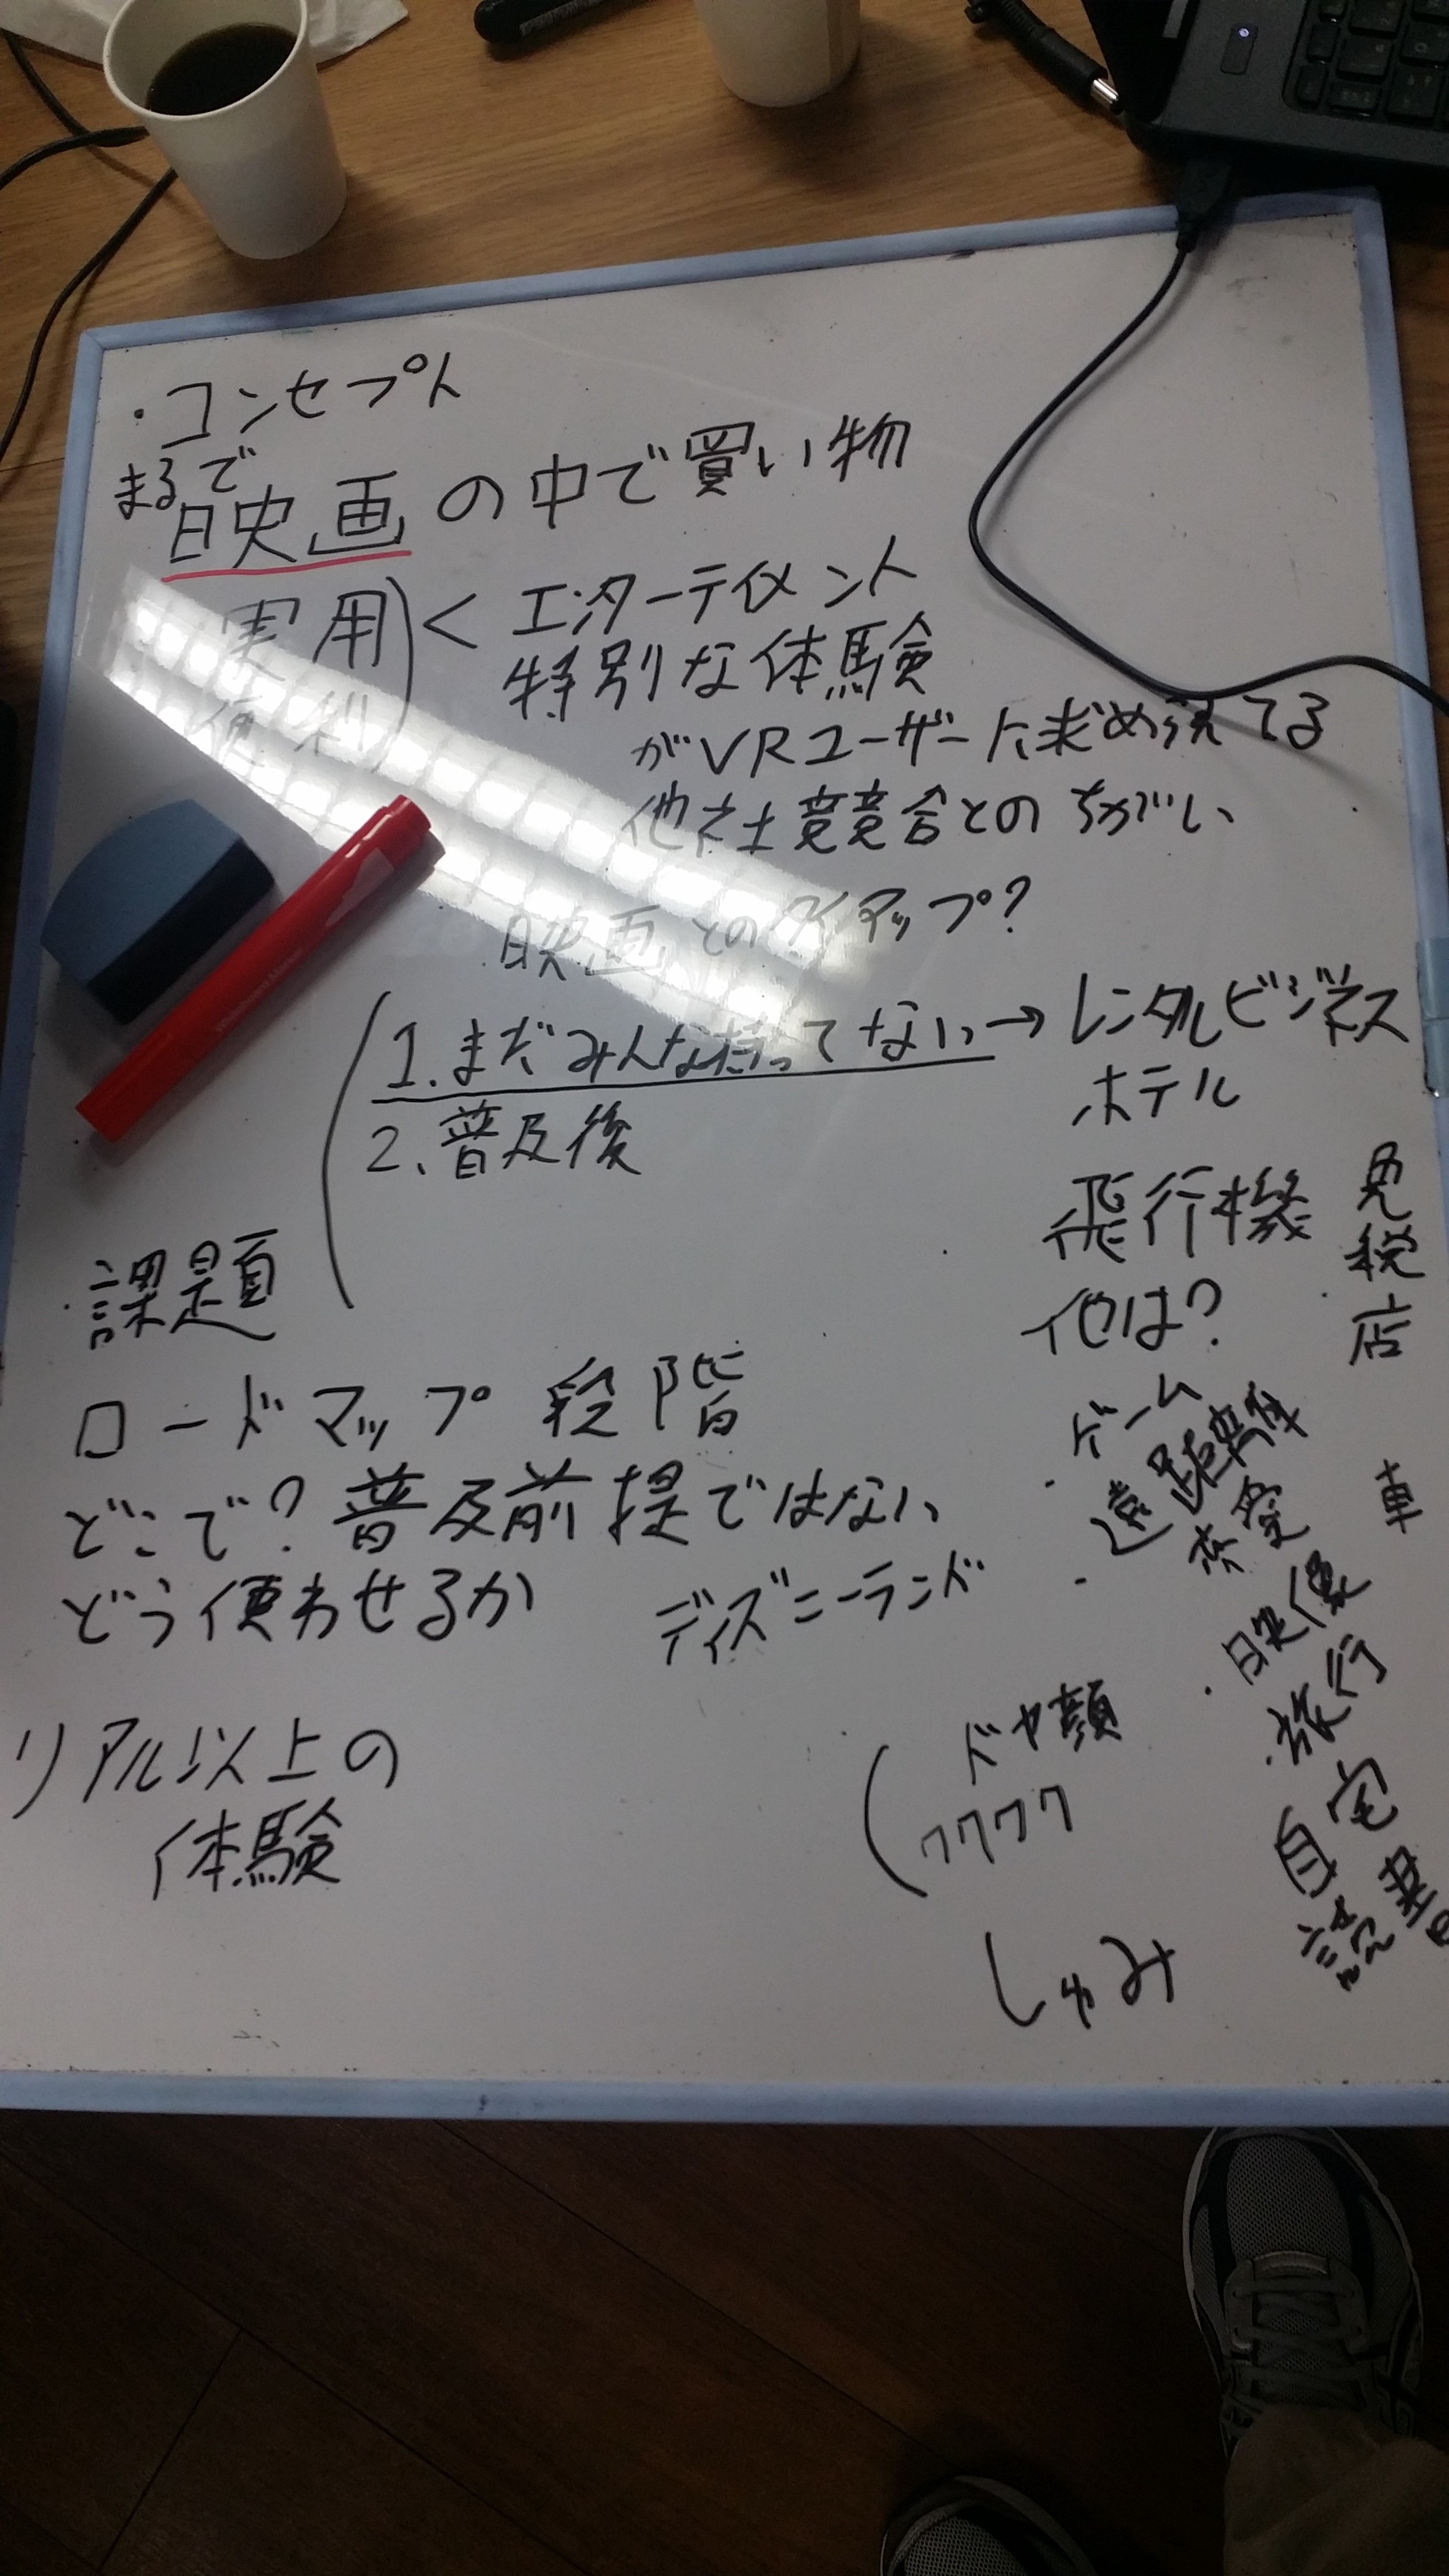 ・コンセプト
まるで
映画の中で買い物
実用)< エンターテイメント
便利
特別な体験
がVRユーザーに求められてる
他社競合とのちがい
映画とのタイアップ?
1.まだみんな持ってない→レンタルビジネス
2.普及後
ホテル
飛行機
免税店
他は?
・課題
ロードマップ 段階
どこで?普及前提ではない
どう使わせるか
ディズニーランド
リアル以上の
体験
・ゲーム
・遠距離
恋愛
車
・映像
・旅行
自宅
読書
ドヤ顔
ワクワク
しゅみ